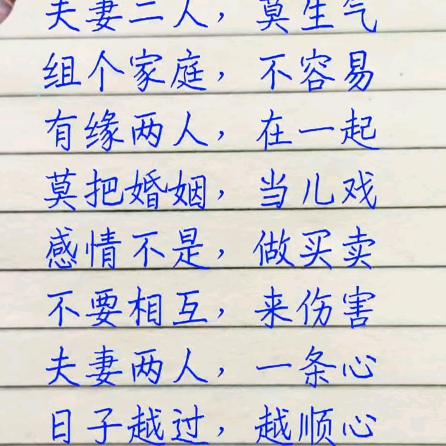 夫妻二人，莫生气
组个家庭，不容易
有缘两人，在一起
莫把婚姻，当儿戏
感情不是，做买卖
不要相互，来伤害
夫妻两人，一条心
日子越过，越顺心